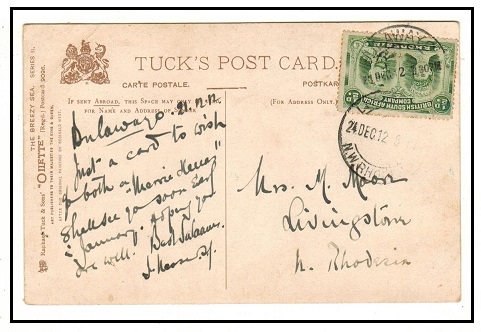 TUCK'S POST CARD
CARTE POSTALE.
POSTKAR
IF SENT ABROAD, THIS SPACE MAY
FOR NAME AND ADDRESS OF
(FOR ADDRESS ONLY.)
THE BREEZY SEA. SERIES II.
Raphael Tuck & Sons' "OILETTE" [Regd.] Postcard 9096.
RHODESIA
BRITISH SOUTH AFRICA
COMPANY
24 DEC 12
N.W. RH
Bulawayo 22.12.12.
Just a card to wish
u both a Merrie Xmas
Shall see you soon early
January. Hoping you
are well. Best Salaams.
Mrs. M. Moore
Livingstone
N. Rhodesia